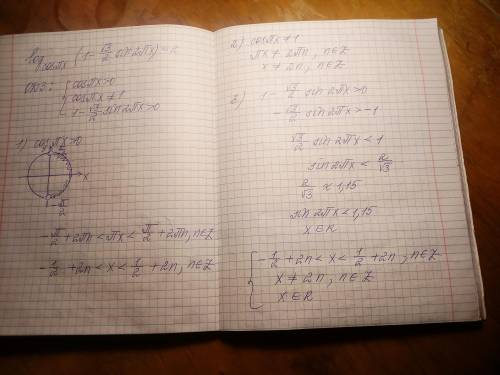 log_{cosπx} (1 - √3/2 sin 2πx) = 2
ОДЗ: { cosπx > 0
cosπx ≠ 1
1 - √3/2 sin 2πx > 0
1) cosπx > 0
x
-π/2
-π/2 + 2πn < πx < π/2 + 2πn, n∈Z
-1/2 + 2n < x < 1/2 + 2n, n∈Z
2) cosπx ≠ 1
πx ≠ 2πn, n∈Z
x ≠ 2n, n∈Z
3) 1 - √3/2 sin 2πx > 0
-√3/2 sin 2πx > -1
√3/2 sin 2πx < 1
sin 2πx < 2/√3
2/√3 ≈ 1,15
sin 2πx < 1,15
x∈R
{ -1/2 + 2n < x < 1/2 + 2n, n∈Z
x ≠ 2n, n∈Z
x∈R